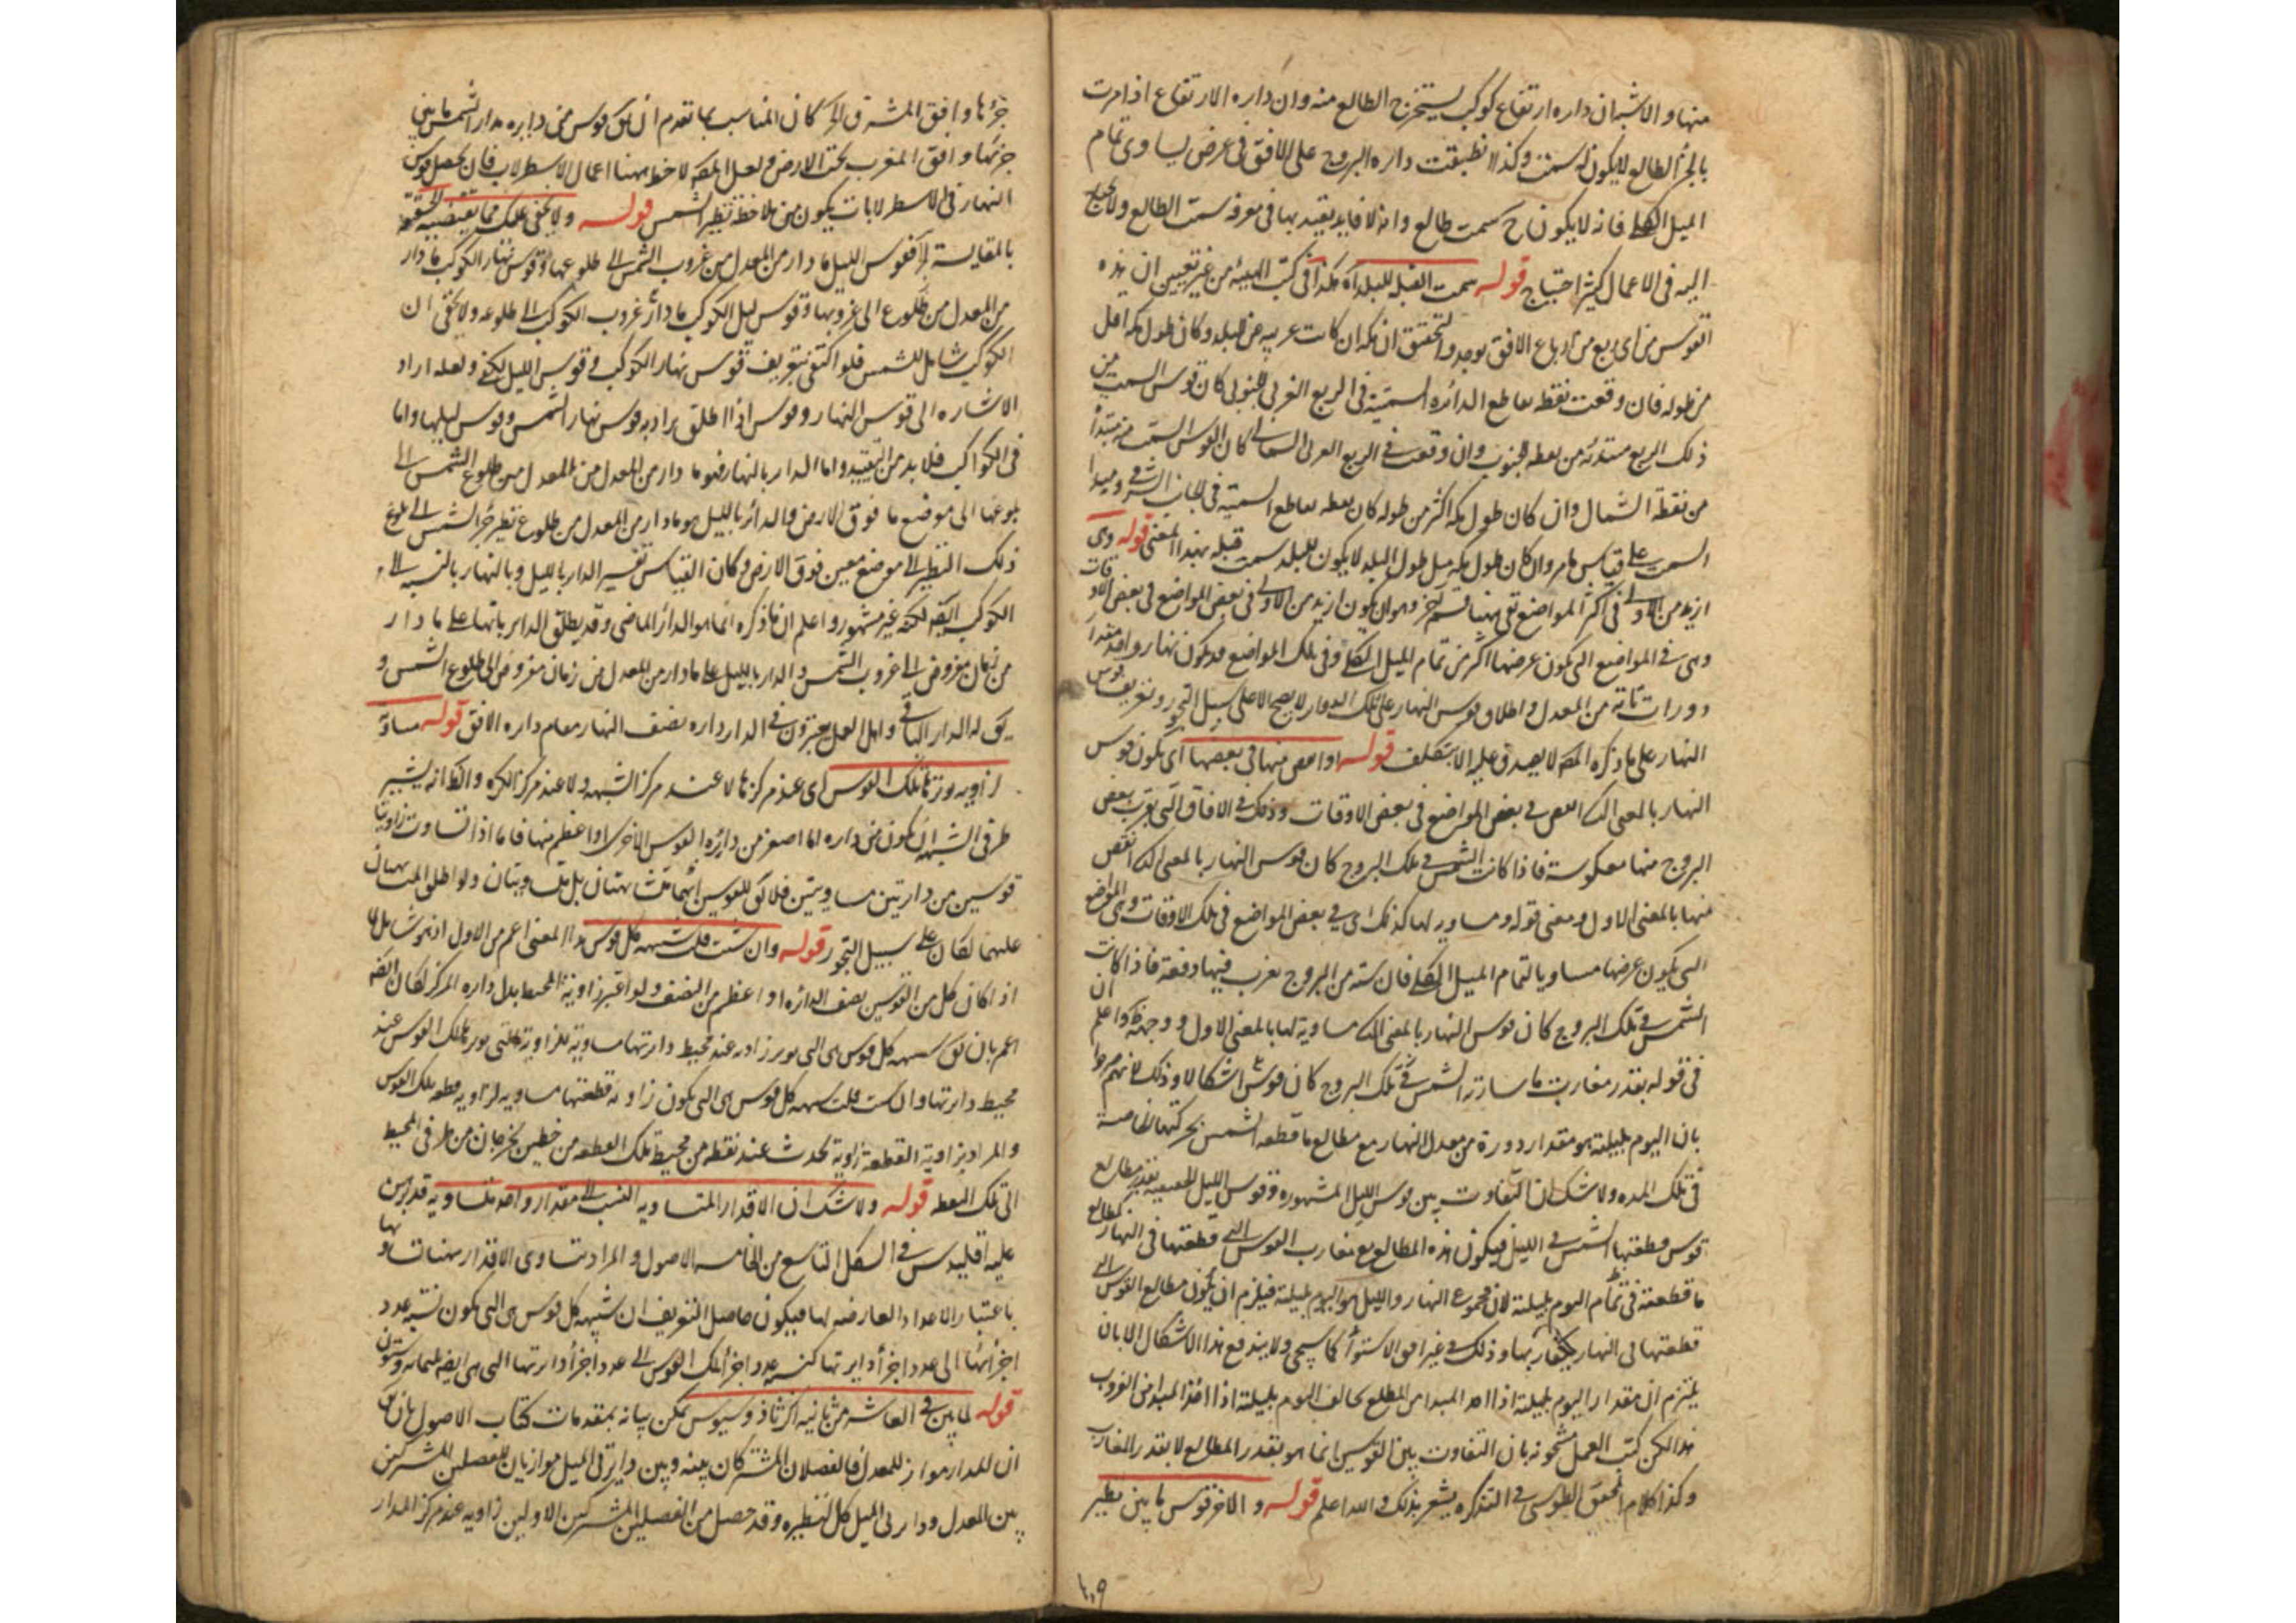 منها والاشبه ان دايره ارتفاع كوكب يستخرج الطالع منه وان دايره الارتفاع اذا مرت
بالجزء الطالع لايكون له سمت وكذا اذا انطبقت دايره البروج على الافق في عرض يساوى تمام
الميل الكلي فانه لايكون ح سمت طالع وانه لا فايده يعتد بها في معرفه سمت الطالع ولا يحتاج
اليه في الاعمال كثير احتياج قوله سمت القبله للبلد اه هكذا في كتب الهيئه من غير تعيين ان هذه
القوس من اى ربع من ارباع الافق يوجد والتحقيق ان مكه ان كانت غربيه من البلد وكان طول مكه اقل
من طوله فان وقعت نقطه تقاطع الدائره السمتيه في الربع الغربى الجنوبى كان قوس السمت من
ذلك الربع مبتدئه من نقطه الجنوب وان وقعت في الربع الغربى الشمالى كان القوس السمت منه مبتدأ
من نقطة الشمال وان كان طول مكه اكثر من طوله كان نقطه تقاطع السمتيه في الجانب الشرقى ومبدا
السمت على قياس ما مر وان كان طول مكه مثل طول البلد لايكون للبلد سمت قبله بهذا المعنى قوله وهى
ازيد من الاولى في اكثر المواضع بقى هنا قسم آخر وهو ان يكون ازيد من الاولى في بعض المواضع في بعض الاوقات
وهى في المواضع التى يكون عرضها اكثر من تمام الميل الكلى وفى تلك المواضع قد يكون نهار واحد مقدار
دورات تامه من المعدل واطلاق قوس النهار على تلك الدوار لايصح الا على سبيل التجوز وتعريف قوس
النهار على ما ذكره المصه لايصدق عليه الا بتكلف قوله او انقص منها في بعضها اى يكون قوس
النهار بالمعنى الثانى انقص في بعض المواضع في بعض الاوقات وذلك في الافاق التى يغرب بعض
البروج منها معكوسة فاذا كانت الشمس في تلك البروج كان قوس النهار بالمعنى الثانى انقص
منها بالمعنى الاول ومعنى قوله ومساوية لها كذلك اى في بعض المواضع في تلك الاوقات وهى المواضع
التى يكون عرضها مساويا لتمام الميل الكلى فان سته من البروج يغرب فيها دفعة فاذا كانت
الشمس في تلك البروج كان قوس النهار بالمعنى الثانى مساوية لها بالمعنى الاول ووجهه ظ واعلم ان
في قوله بقدر مغارب ما سارته الشمس في تلك البروج كان قوس اشكالا وذلك لانهم صرحوا
بان اليوم بليلته هو مقدار دورة من معدل النهار مع مطالع ما قطعه الشمس بحركتها الخاصة
في تلك المده ولا شك ان التفاوت بين قوس الليل المشهوره وقوس الليل الحقيقيه بقدر مطالع
قوس قطعتها الشمس في الليل فيكون هذه المطالع مع مغارب القوس التى قطعتها في النهار كمطالع
ما قطعته في تمام اليوم بليلته لان مجموع النهار والليل هو اليوم بليلته فيلزم ان يكون مطالع القوس التى
قطعتها في النهار كمغاربها وذلك في غير افق الاستواء كما سيجى ولا يندفع هذا الاشكال الا بان
يلتزم ان مقدار اليوم بليلته اذا اخذ المبدا من الطلوع يخالف اليوم بليلته اذا اخذ المبدا من الغروب
هذا لكن كتب العمل مشحونه بان التفاوت بين القوسين انما هو بقدر المطالع لا بقدر المغارب
وكذا كلام المحقق الطوسى في التذكره يشعر بذلك والله اعلم قوله والاخر قوس ما بين نظير
١٠٩
جزئها وافق المشرق الخ كان المناسب بما تقدم ان يق قوس من دايره مدار الشمس ما بين
جزئها وافق المغرب تحت الارض ولعل المصه لاحظ ههنا اعمال الاسطرلاب فان تحصيل قوس
النهار في الاسطرلابات يكون من ملاحظة نظير الشمس قوله ولايخفى عليك مما يقتضيه الحقيقة
بالمقايسة الخ فقوس الليل ما دار من المعدل من غروب الشمس الى طلوعها وقوس نهار الكوكب ما دار
من المعدل من طلوع الى غروبها وقوس ليل الكوكب ما دار غروب الكوكب الى طلوعه ولايخفى ان
الكوكب شامل للشمس فلو اكتفى بتعريف قوس نهار الكوكب وقوس الليل يكفى ولعله اراد
الاشاره الى قوس النهار وقوس اذا اطلق يراد به قوس نهار الشمس وقوس ليلها واما
في الكواكب فلا بد من التقييد واما الداير بالنهار فهو ما دار من المعدل من المعدل من طلوع الشمس الى
بلوغها الى موضع ما فوق الارض والدائر بالليل هو ما دار من المعدل من طلوع نظير جزء الشمس الى بلوغ
ذلك النظير الى موضع معين فوق الارض وكان القياس تفسير الداير بالليل وبالنهار بالنسبه الى
الكوكب ايضه لكنه غير مشهور واعلم ان ما ذكره انما هو الدائر الماضى وقد يطلق الداير بالنهار على ما دار
من زمان مفروض الى غروب الشمس والداير بالليل على ما دار من المعدل من زمان مفروض الى طلوع الشمس و
يق له الداير الباقى واهل العمل يعتبرون في الداير دايره نصف النهار مقام دايره الافق قوله مساوية
لزاويه وترها تلك القوس اى عند مركزها لا عند مركز الشبيهه ولا عند مركز الكره والظ انه يشير
طرفى الشبيهه ان يكون من دايره اما اصغر من دايره القوس الاخرى او اعظم منها فاما اذا تساوت زاويتا
قوسين من دايرتين مساويتين فلا يق للقوسين انهما متشابهتان بل متساويتان ولو اطلق المتشابهتان
عليهما لكان على سبيل التجوز قوله وان شئت قلت شبيهه كل قوس هذا المعنى اعم من الاول اذ هو شامل لما
اذا كان كل من القوسين نصف الدائره او اعظم من النصف ولو اعتبر زاوية المحيط بدل دايره المركز لكان ايضه
اعم بان يق شبيهه كل قوس هى التى يوتر زاويه عند محيط دايرتها مساوية للزاوية التى يوترها تلك القوس عند
محيط دايرتها وان شئت قلت شبيهه كل قوس هى التى يكون زاويه قطعتها مساويه لزاويه قطعه تلك القوس
والمراد بزاوية القطعة زاوية تحدث عند نقطه من محيط تلك القطعه من خطين يخرجان من طرفى المحيط
الى تلك النقطه قوله ولا شك ان الاقدار المتساويه النسب الى مقدار واحد متساويه قد برهن
عليه اقليدس في الشكل التاسع من الخامسه الاصول والمراد بتساوى الاقدار ههنا تساويها
باعتبار الاعداد العارضه لها فيكون حاصل التعريف ان شبيهه كل قوس هى التى يكون نسبه عدد
اجزائها الى عدد اجزاء دايرتها كنسبه عدد اجزاء تلك القوس الى عدد اجزاء دايرتها التى هى ايضه ثلثمائه وستون
قوله لما بين في العاشر من ثانيه اكر ثاوذوسيوس يمكن بيانه بمقدمات كتاب الاصول بان يق
ان للمدار مواز للمعدل فالفصلان المشتركان بينه وبين دايرتى الميل موازيان للفصلين المشتركين
بين المعدل ودايرتى الميل كل لنظيره وقد حصل من الفصلين المشتركين الاولين زاويه عند مركز المدار